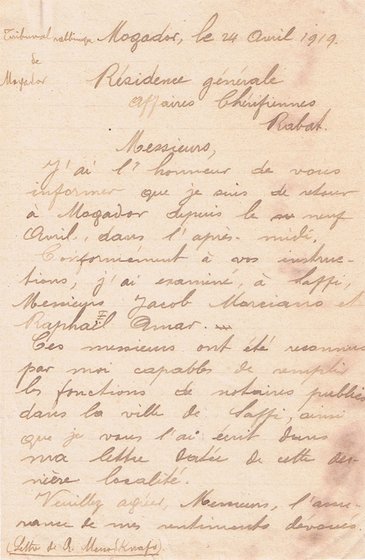 Tribunal rabbinique
de
Mogador
Mogador, le 24 Avril 1919.
Résidence générale
Affaires Chérifiennes
Rabat.
Messieurs,
J'ai l'honneur de vous
informer que je suis de retour
à Mogador depuis le neuf
Avril, dans l'après-midi.
Conformément à vos instruc-
tions, j'ai examiné, à Saffi,
Messieurs Jacob Marciano et
Raphaël Amar.
Ces messieurs ont été reconnus
par moi capables de remplir
les fonctions de notaires publics
dans la ville de Saffi, ainsi
que je vous l'ai écrit dans
ma lettre datée de cette der-
nière localité.
Veuillez agréer, Messieurs, l'assu-
rance de mes sentiments dévoués.
(Lettre de R.